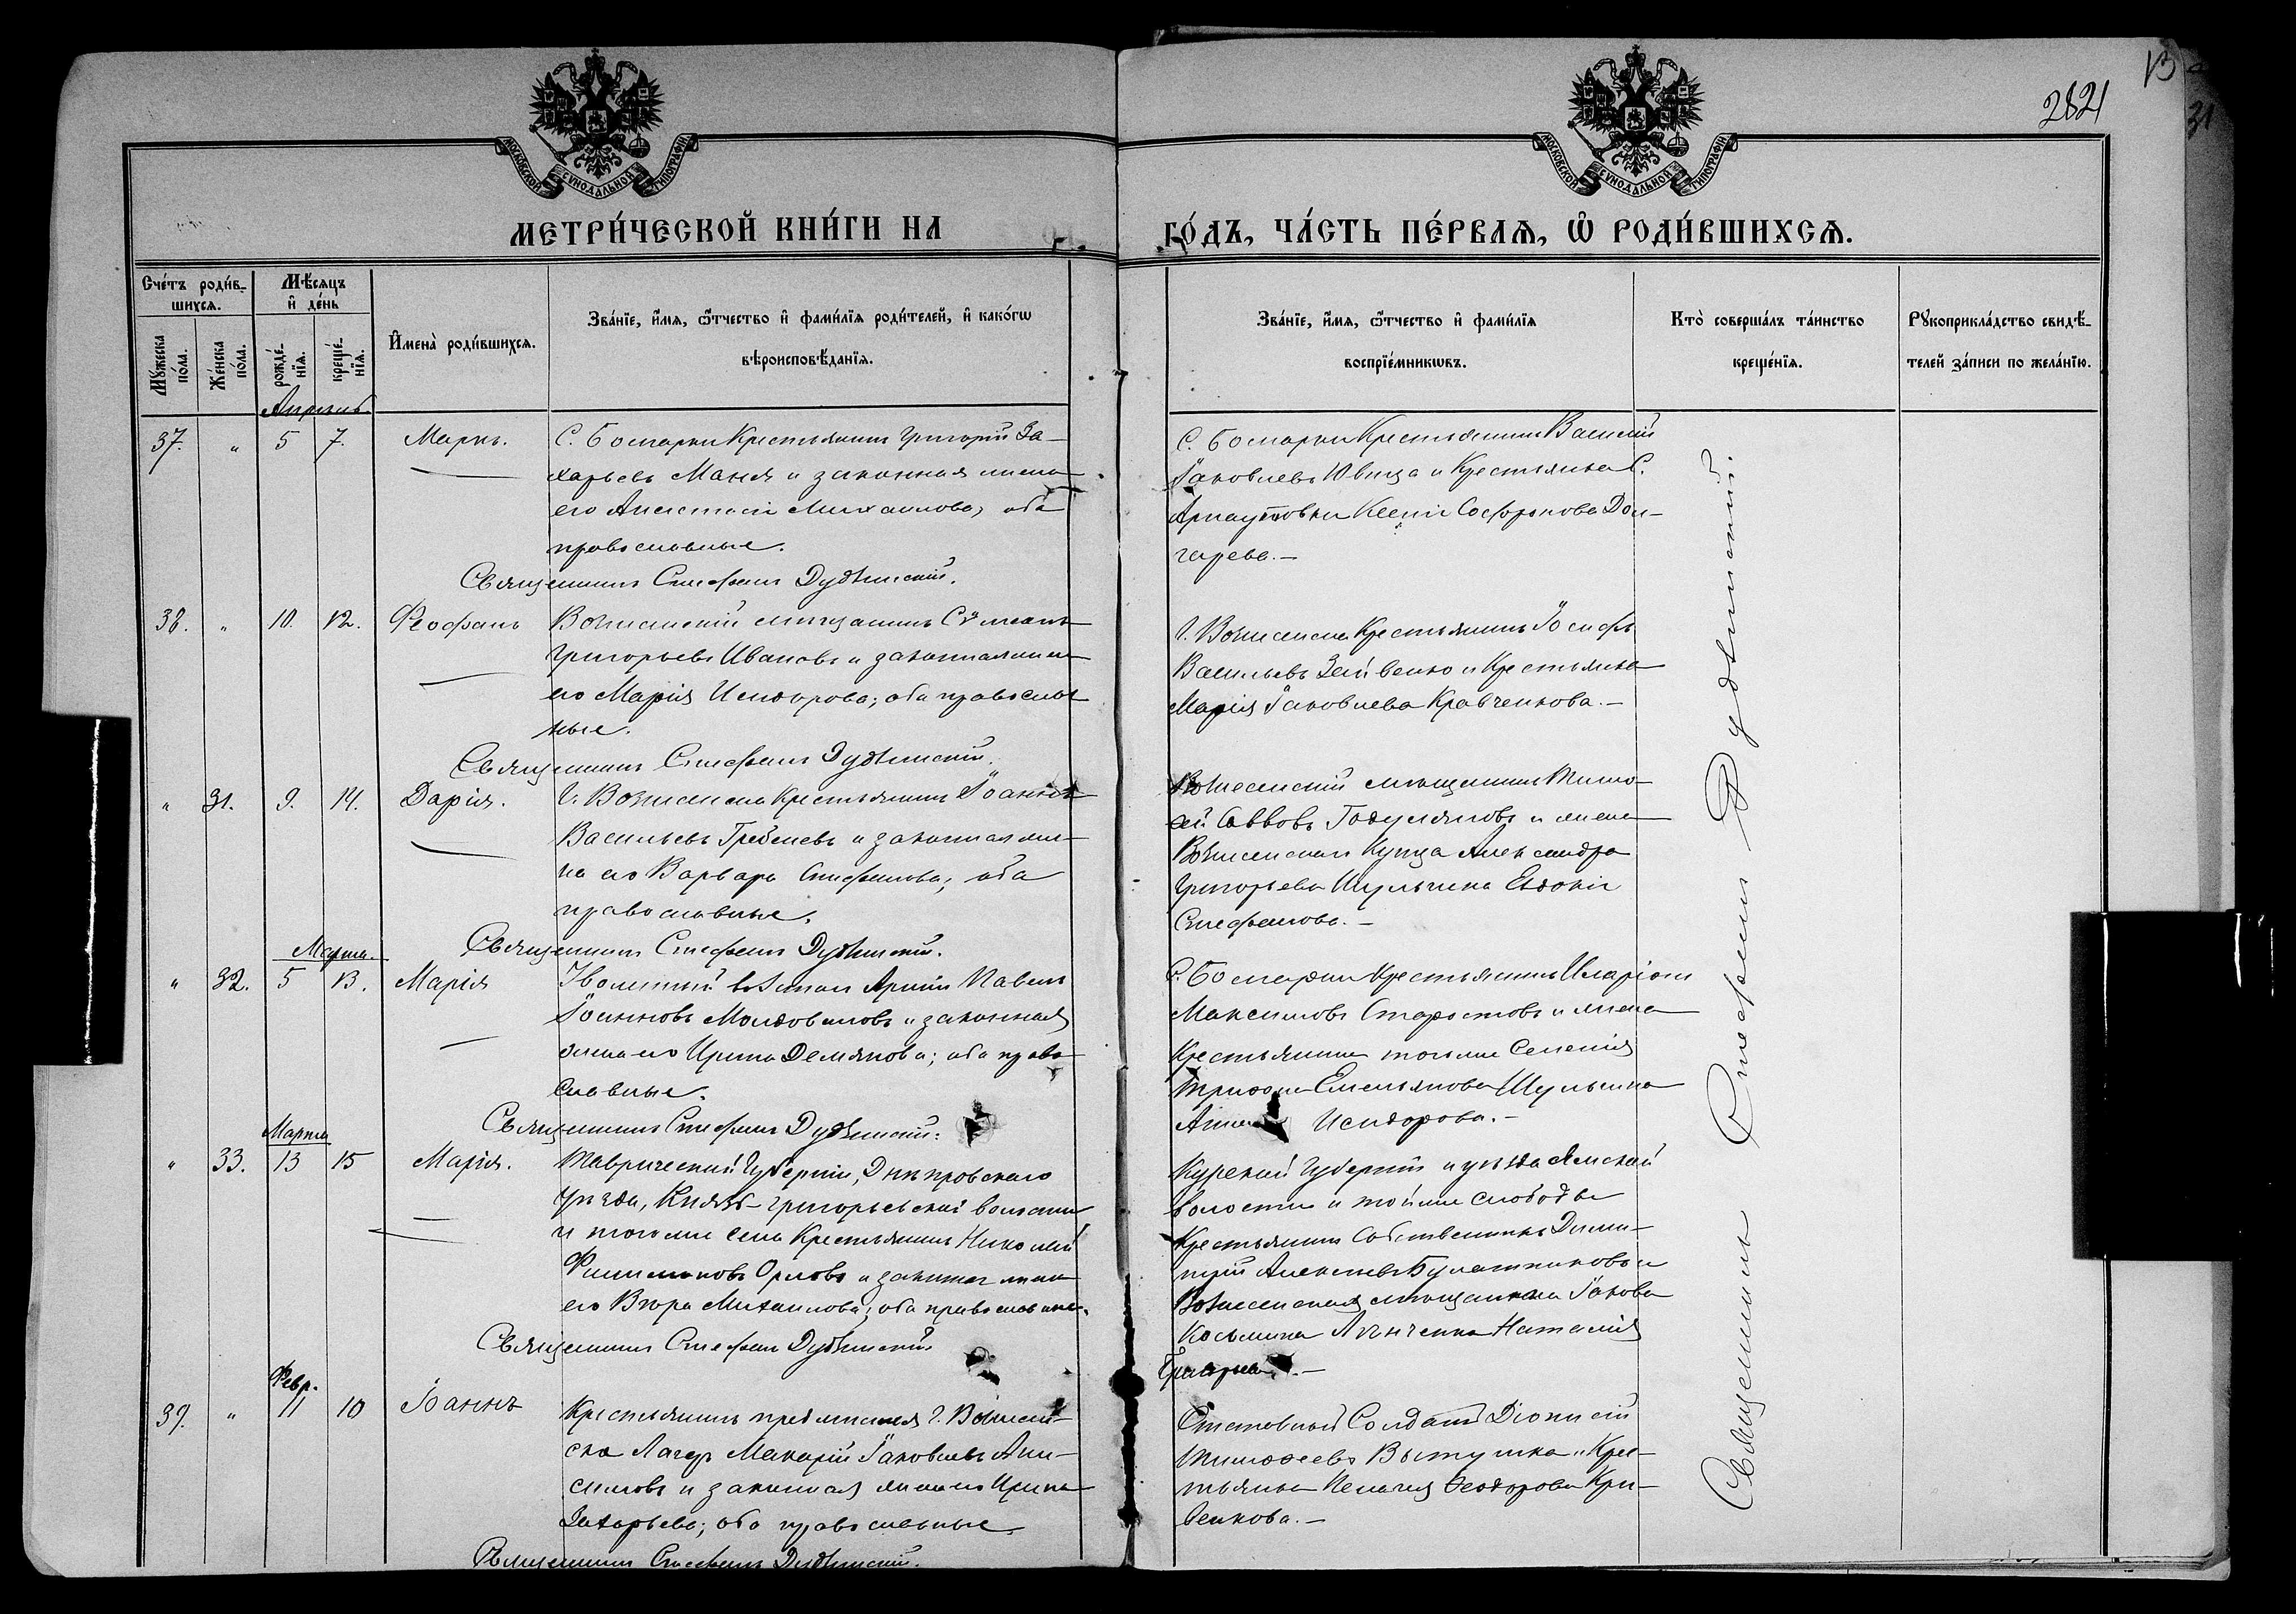 МОСКОВСКОЙ СѴНОДАЛЬНОЙ ТИПОГРАФІИ
МОСКОВСКОЙ СѴНОДАЛЬНОЙ ТИПОГРАФІИ
13
31
2821
МЕТРИ́ЧЕСКОЙ КНИ́ГИ НА
ГО́ДЪ, ЧА́СТЬ ПЕ́РВАѦ, Ѡ҆ РОДИ́ВШИХСѦ.
Сче́тъ роди́в-
шихсѧ.
Мѣ́сѧцъ
и҆ де́нь
Мꙋ́жеска
по́ла.
Же́нска
по́ла.
рожде́-
нїѧ.
креще́-
нїѧ.
И҆мена̀ роди́вшихсѧ.
Зва́нїе, и҆́мѧ, ѻ҆́тчество и҆ фами́лїѧ роди́телей, и҆ како́гѡ
вѣроисповѣ́данїѧ.
Зва́нїе, и҆́мѧ, ѻ҆́тчество и҆ фами́лїѧ
воспрїе́мникѡвъ.
Кто̀ соверша́лъ та́инство
креще́нїѧ.
Рꙋкоприкла́дство свидѣ́-
телей за́писи по жела́нїю.
Апрѣль
37. " 5 7. Маркъ.
С. Боспарки Крестьянинъ Григорій За-
харьевъ Маня и законная жена
его Анастасія Михаилова, оба
православные.
Священникъ Стефанъ
С. Боспарки Крестьянинъ Василій
Іаковлевъ и Крестьянка С.
Арнаутовки Ксенія Софронова Дол-
гарева.—
38. " 10. 12. Феофанъ
Вознесенскій мѣщанинъ Сѵмеонъ
Григорьевъ Ивановъ и законная жена
его Марія Исидорова; оба православ-
ные.
Священникъ Стефанъ
Г. Вознесенска Крестьянинъ Іосифъ
Васильевъ и Крестьянка
Марія Іаковлева Кравченкова.—
" 31. 9. 14. Дарія.
Г. Вознесенска Крестьянинъ Іоаннъ
Васильевъ Гребеневъ и законная же-
на его Варвара Стефанова; оба
православные.
Священникъ Стефанъ
Вознесенскій мѣщанинъ Тимо-
ѳей Савовъ и жена
Вознесенскаго Купца Александра
Григорьева Шульгина Евдокія
Стефанова.—
Марта.
" 32. 5 13. Марія
въ Армію Павелъ
Іоанновъ Молдовановъ и законная
жена его Ирина Демянова; оба право-
славные.
Священникъ Стефанъ
С. Боспарки Крестьянинъ Иларіонъ
Максимовъ Старостовъ и жена
Крестьянина того же Селенія
Емельянова Шульгина
Анна Исидорова.—
Марта
" 33. 13 15 Марія.
Таврической Губерніи, Днѣпровскаго
уѣзда, Князь-Григорьевской волости
и того же села Крестьянинъ Николай
Филимоновъ Орловъ и законная жена
его Вѣра Михаилова; оба православные.
Священникъ Стефанъ
Курской Губерніи и уѣзда Ямской
волости и той же слободы
Крестьянинъ Собственникъ Дими-
трій Алексѣевъ Булатниковъ и
Вознесенская мѣщанка Іакова
Косьмина Наталія
Февр.
39. " 11 10 Іоаннъ
Крестьянинъ предмѣстья г. Вознесен-
ска Лагеръ Макарій Іаковлевъ Ани-
симовъ и законная жена его Ирина
Захарьева; оба православные
Священникъ Стефанъ
Отставной Солдатъ Діонисій
Тимоѳеевъ и Крес-
тьянка Пелагія Ѳеодорова Кри-
венкова.—
Священникъ Стефанъ